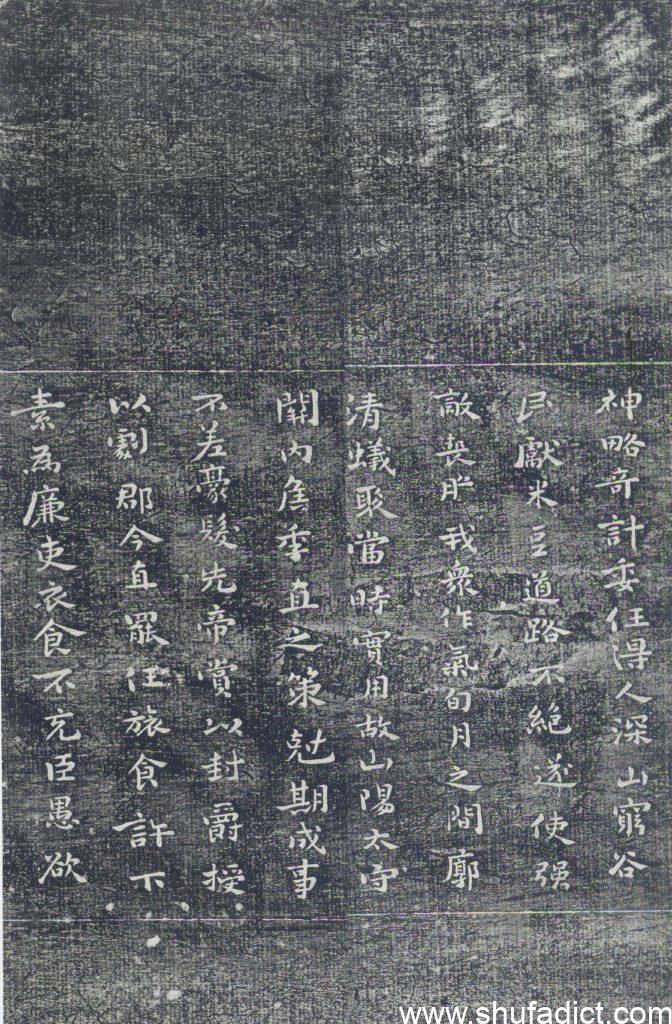 神略奇計委任得人深山窮谷
民獻米豆道路不絕遂使强
敵喪膽我衆作氣旬月之間廓
清蟻聚當時實用故山陽太守
關内侯季直之策尅期成事
不差豪髮先帝賞以封爵授
以劇郡今直罷任旅食許下
素為廉吏衣食不充臣愚欲
www.shufadict.com